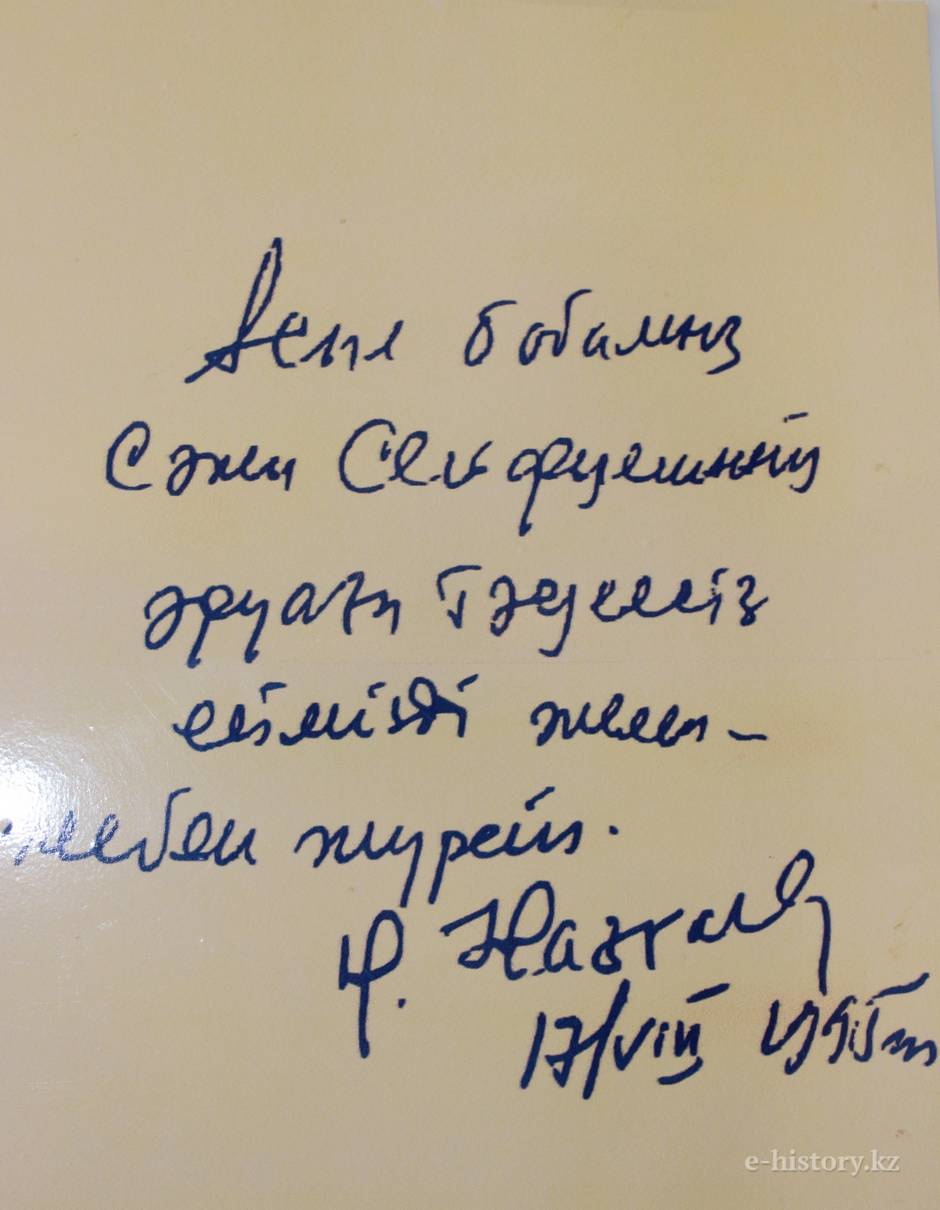 Асыл бабамыз
Сәкен Сейфуллиннің
әруағы тәуелсіз
елімізді желеп-
жебеп жүрсін.
Н. Назарбаев
17/VIII 1995ж
e-history.kz